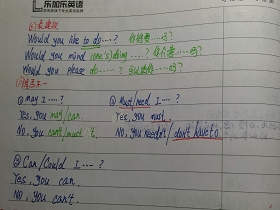 乐加乐英语
Would you like to do....? 你想要....吗?
Would you mind (one's) doing ....? 你介意....吗?
Would you please do.....? 可以请你....吗?
① May I ....? ② Must/need I ....?
Yes, you may/can. Yes, you must.
No, you can't/mustn't. No, you needn't/don't have to
③ Can/Could I ....?
Yes, you can.
No, you can't.